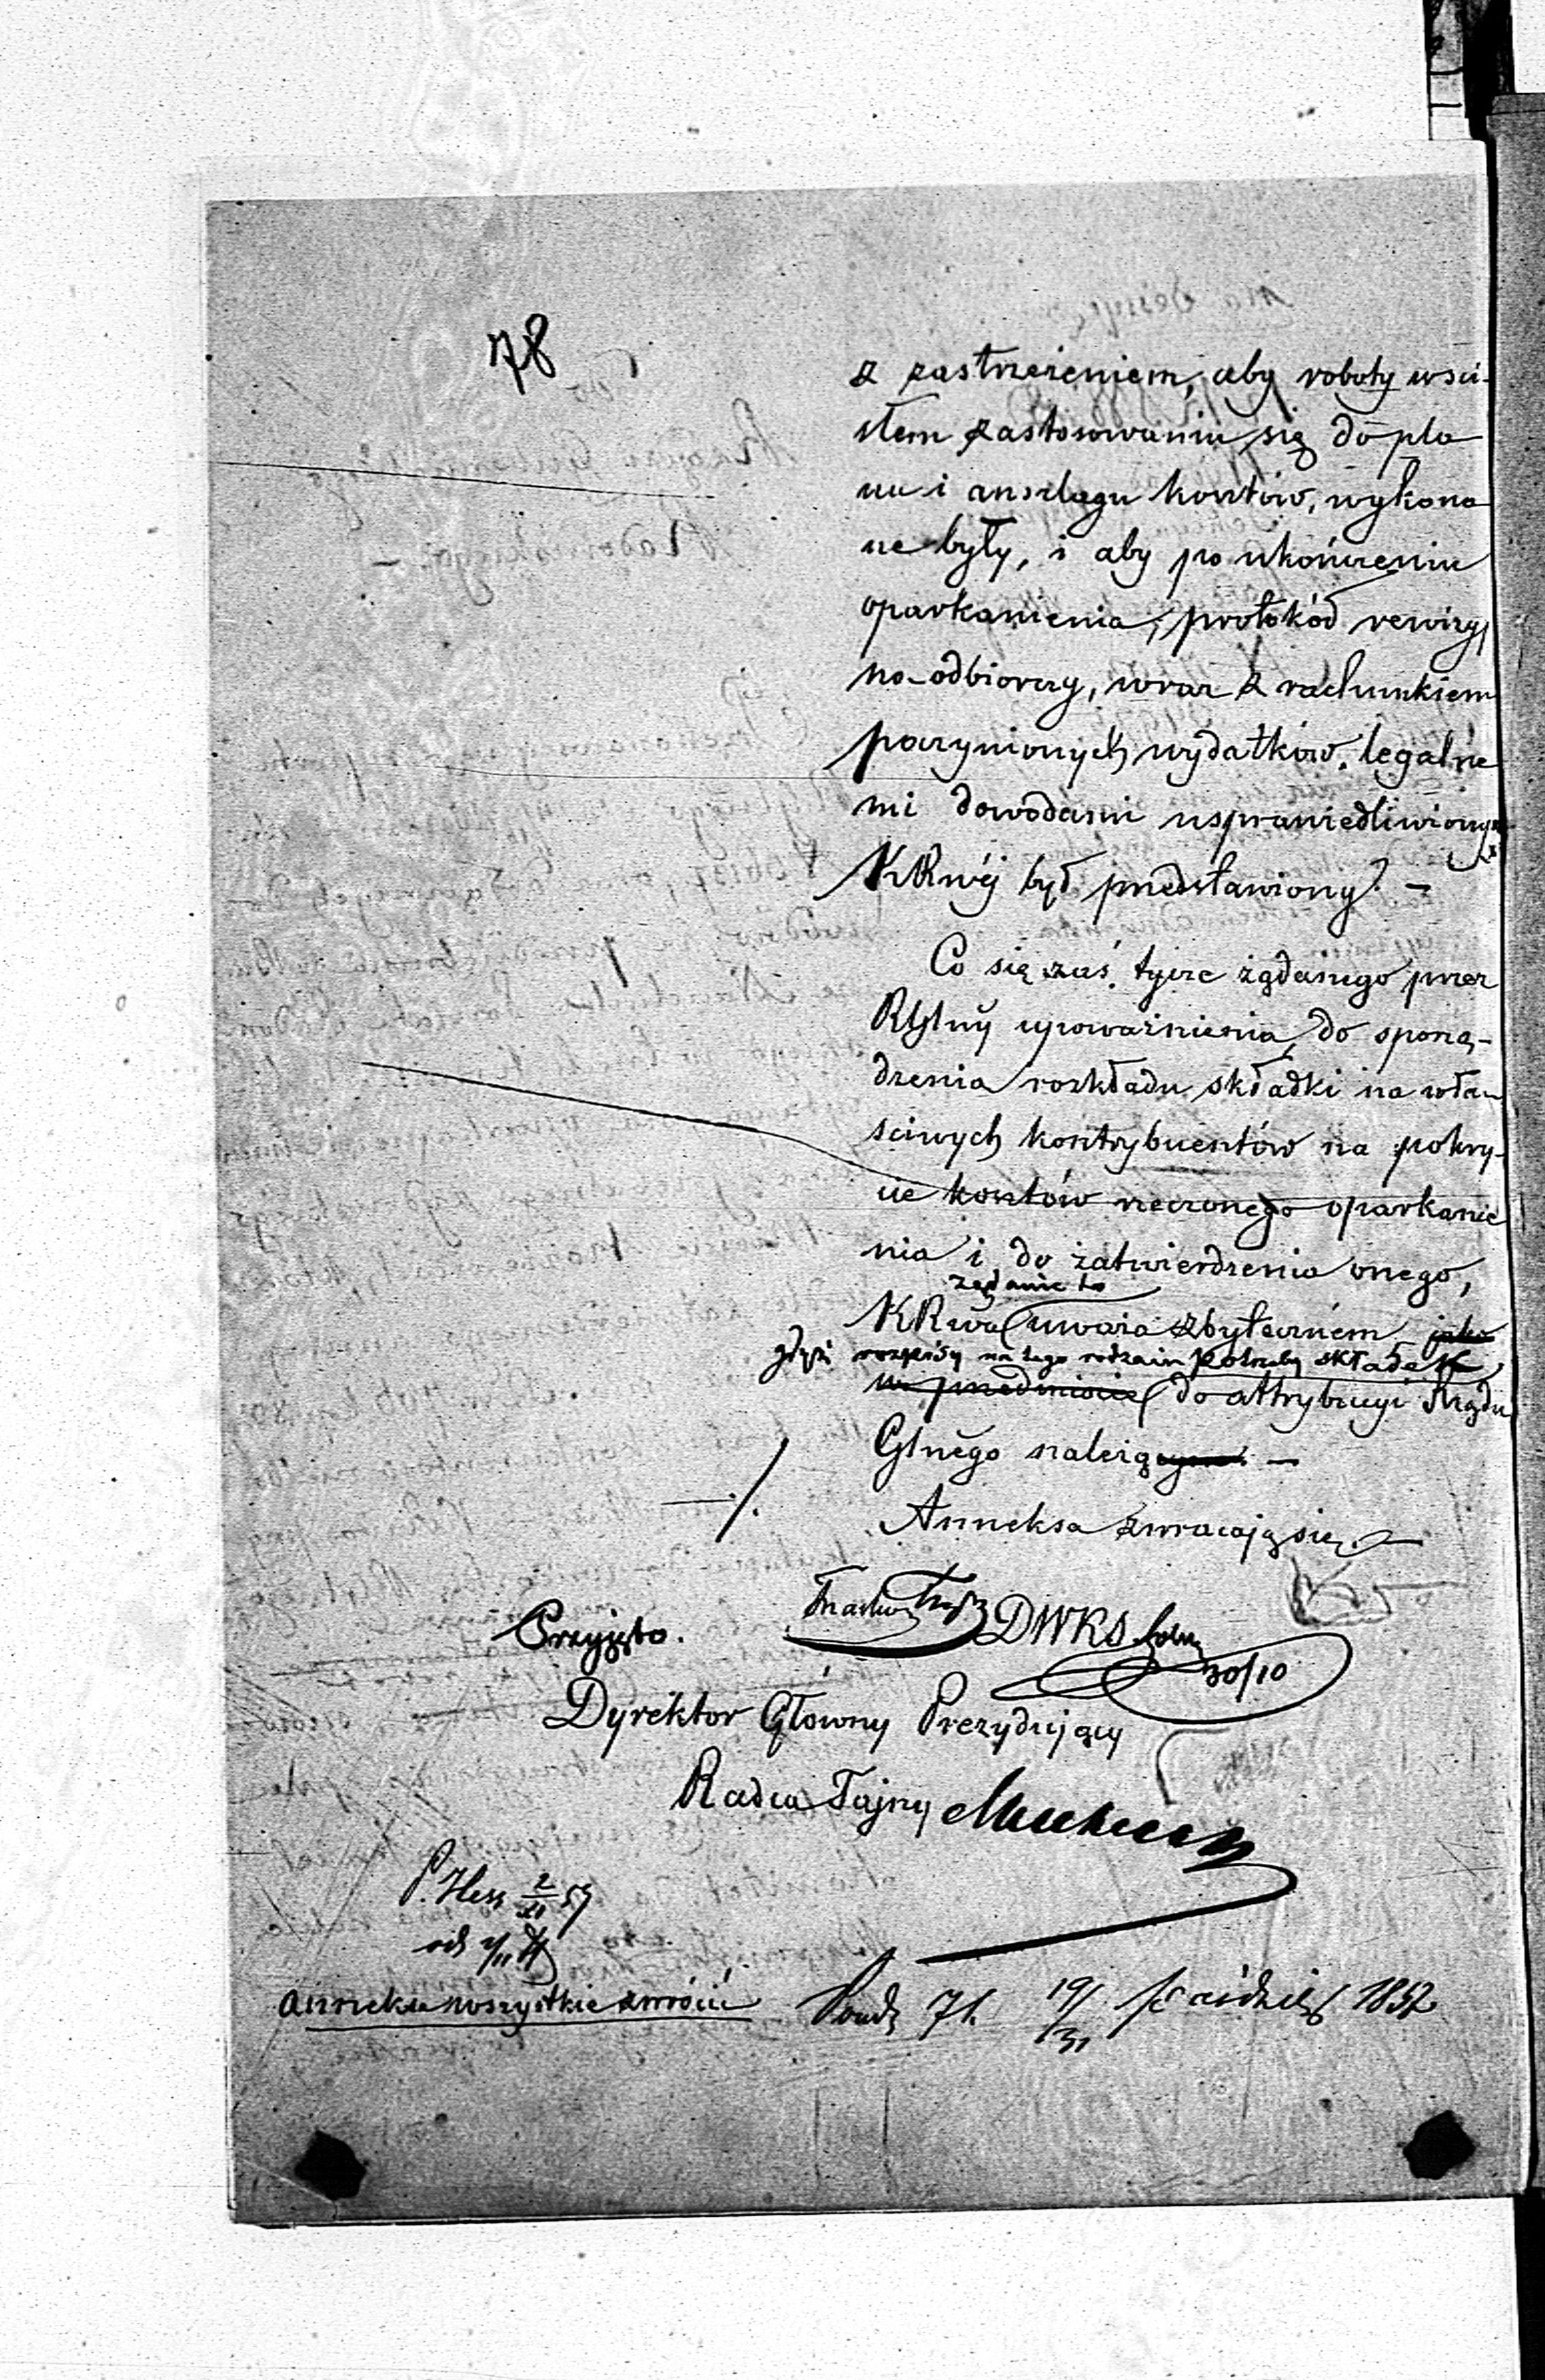 78
z zastrzeżeniem, aby roboty w sci-
słem zastosowaniu się do pla
nu i anszlagu kosztów, wykona
ne były, i aby po ukończeniu
oparkanienia, protokół rewizyj
no-odbiorczy, wraz z rachunkiem
poczynionych wydatków, legalne
mi dowodami usprawiedliwionym
KRwéj był przedstawiony. —
Co się zaś tycze żądanego przez
RGlny upoważnienia, do sporzą-
dzenia rozkładu składki na wła-
sciwych kontrybuentów na pokry-
cie kosztów rzeczonego oparkanie
nia i do zatwierdzenia onego,
żądanie to
KRwa uważa zbytecznem jako
gdyż rozpisy na tego rodzaju potrzeby składek
w przedmiocie do attrybucyi Rządu
Glnego należą —
Anneksa zwracają się. —
Przyjęto. DWKS
30/10
Dyrektor Główny Prezydujący
Radca Tajny
P. Hess 2/XI 57
od 7/11
Anneksa wszystkie zwrócić
71. 19/31 Październ 1857